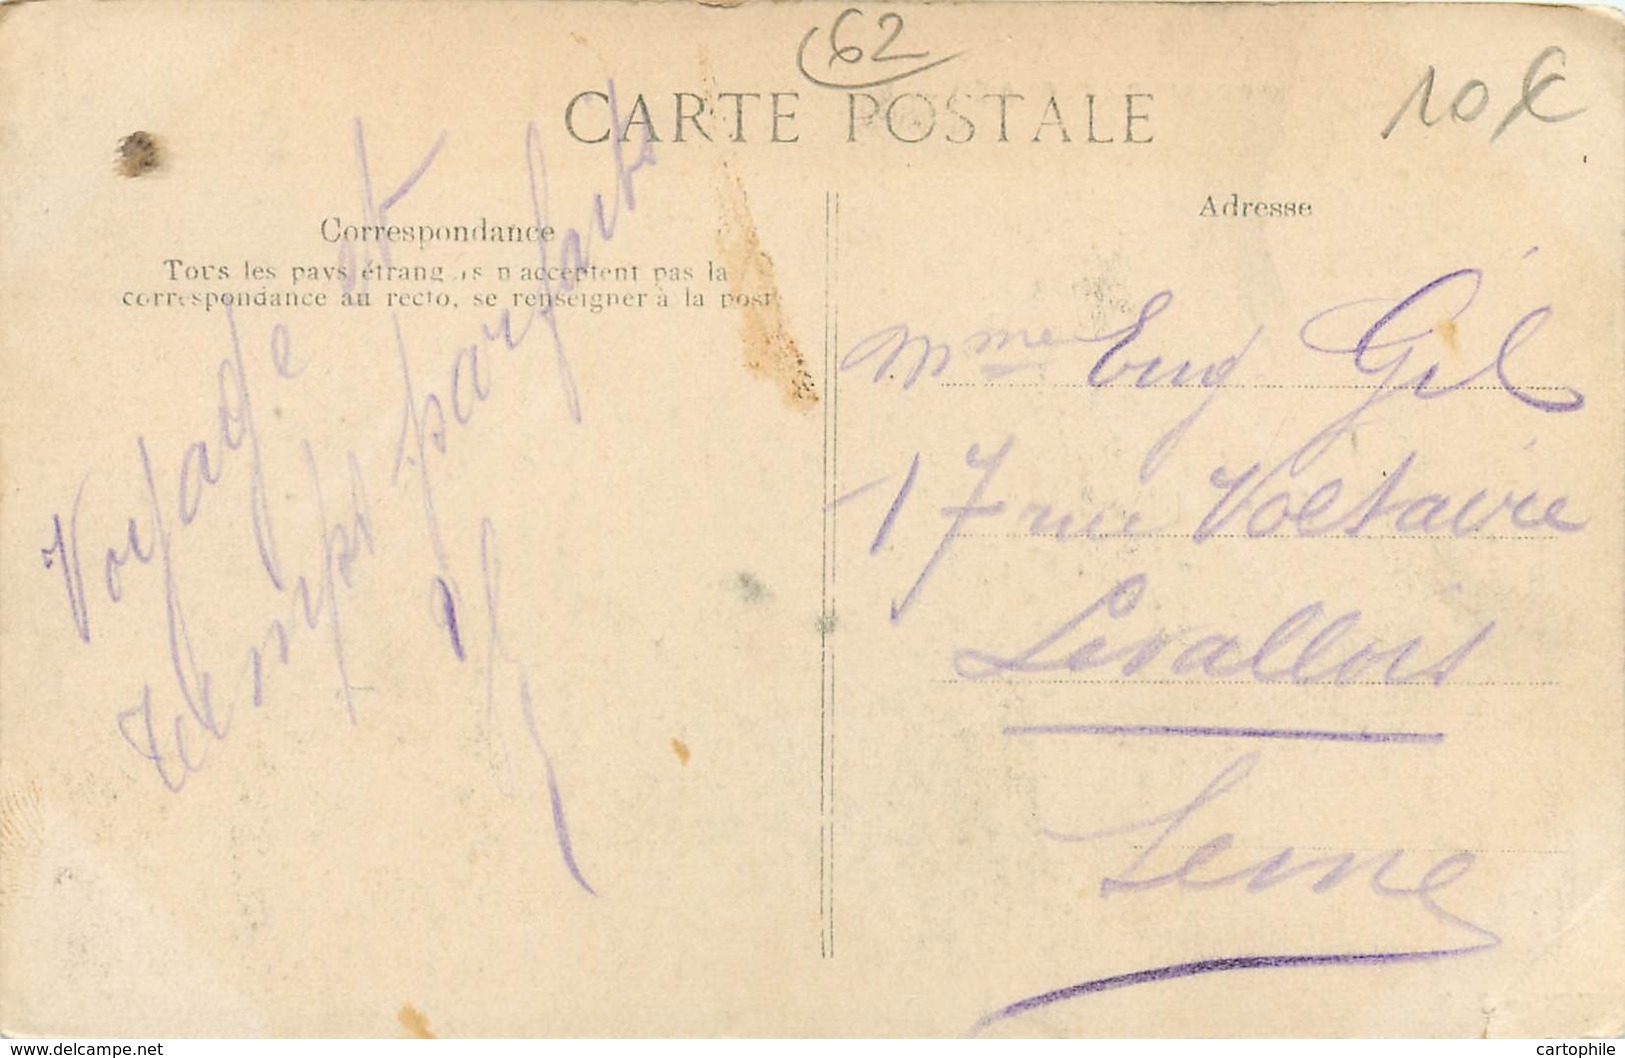 62
10 €
CARTE POSTALE
Correspondance
Tous les pays étrangers n'acceptent pas la
correspondance au recto, se renseigner à la poste
Adresse
Voyage et
temps parfaits
Mme Eug Gil
17 rue Voltaire
Levallois
Seine
www.delcampe.net
cartophile